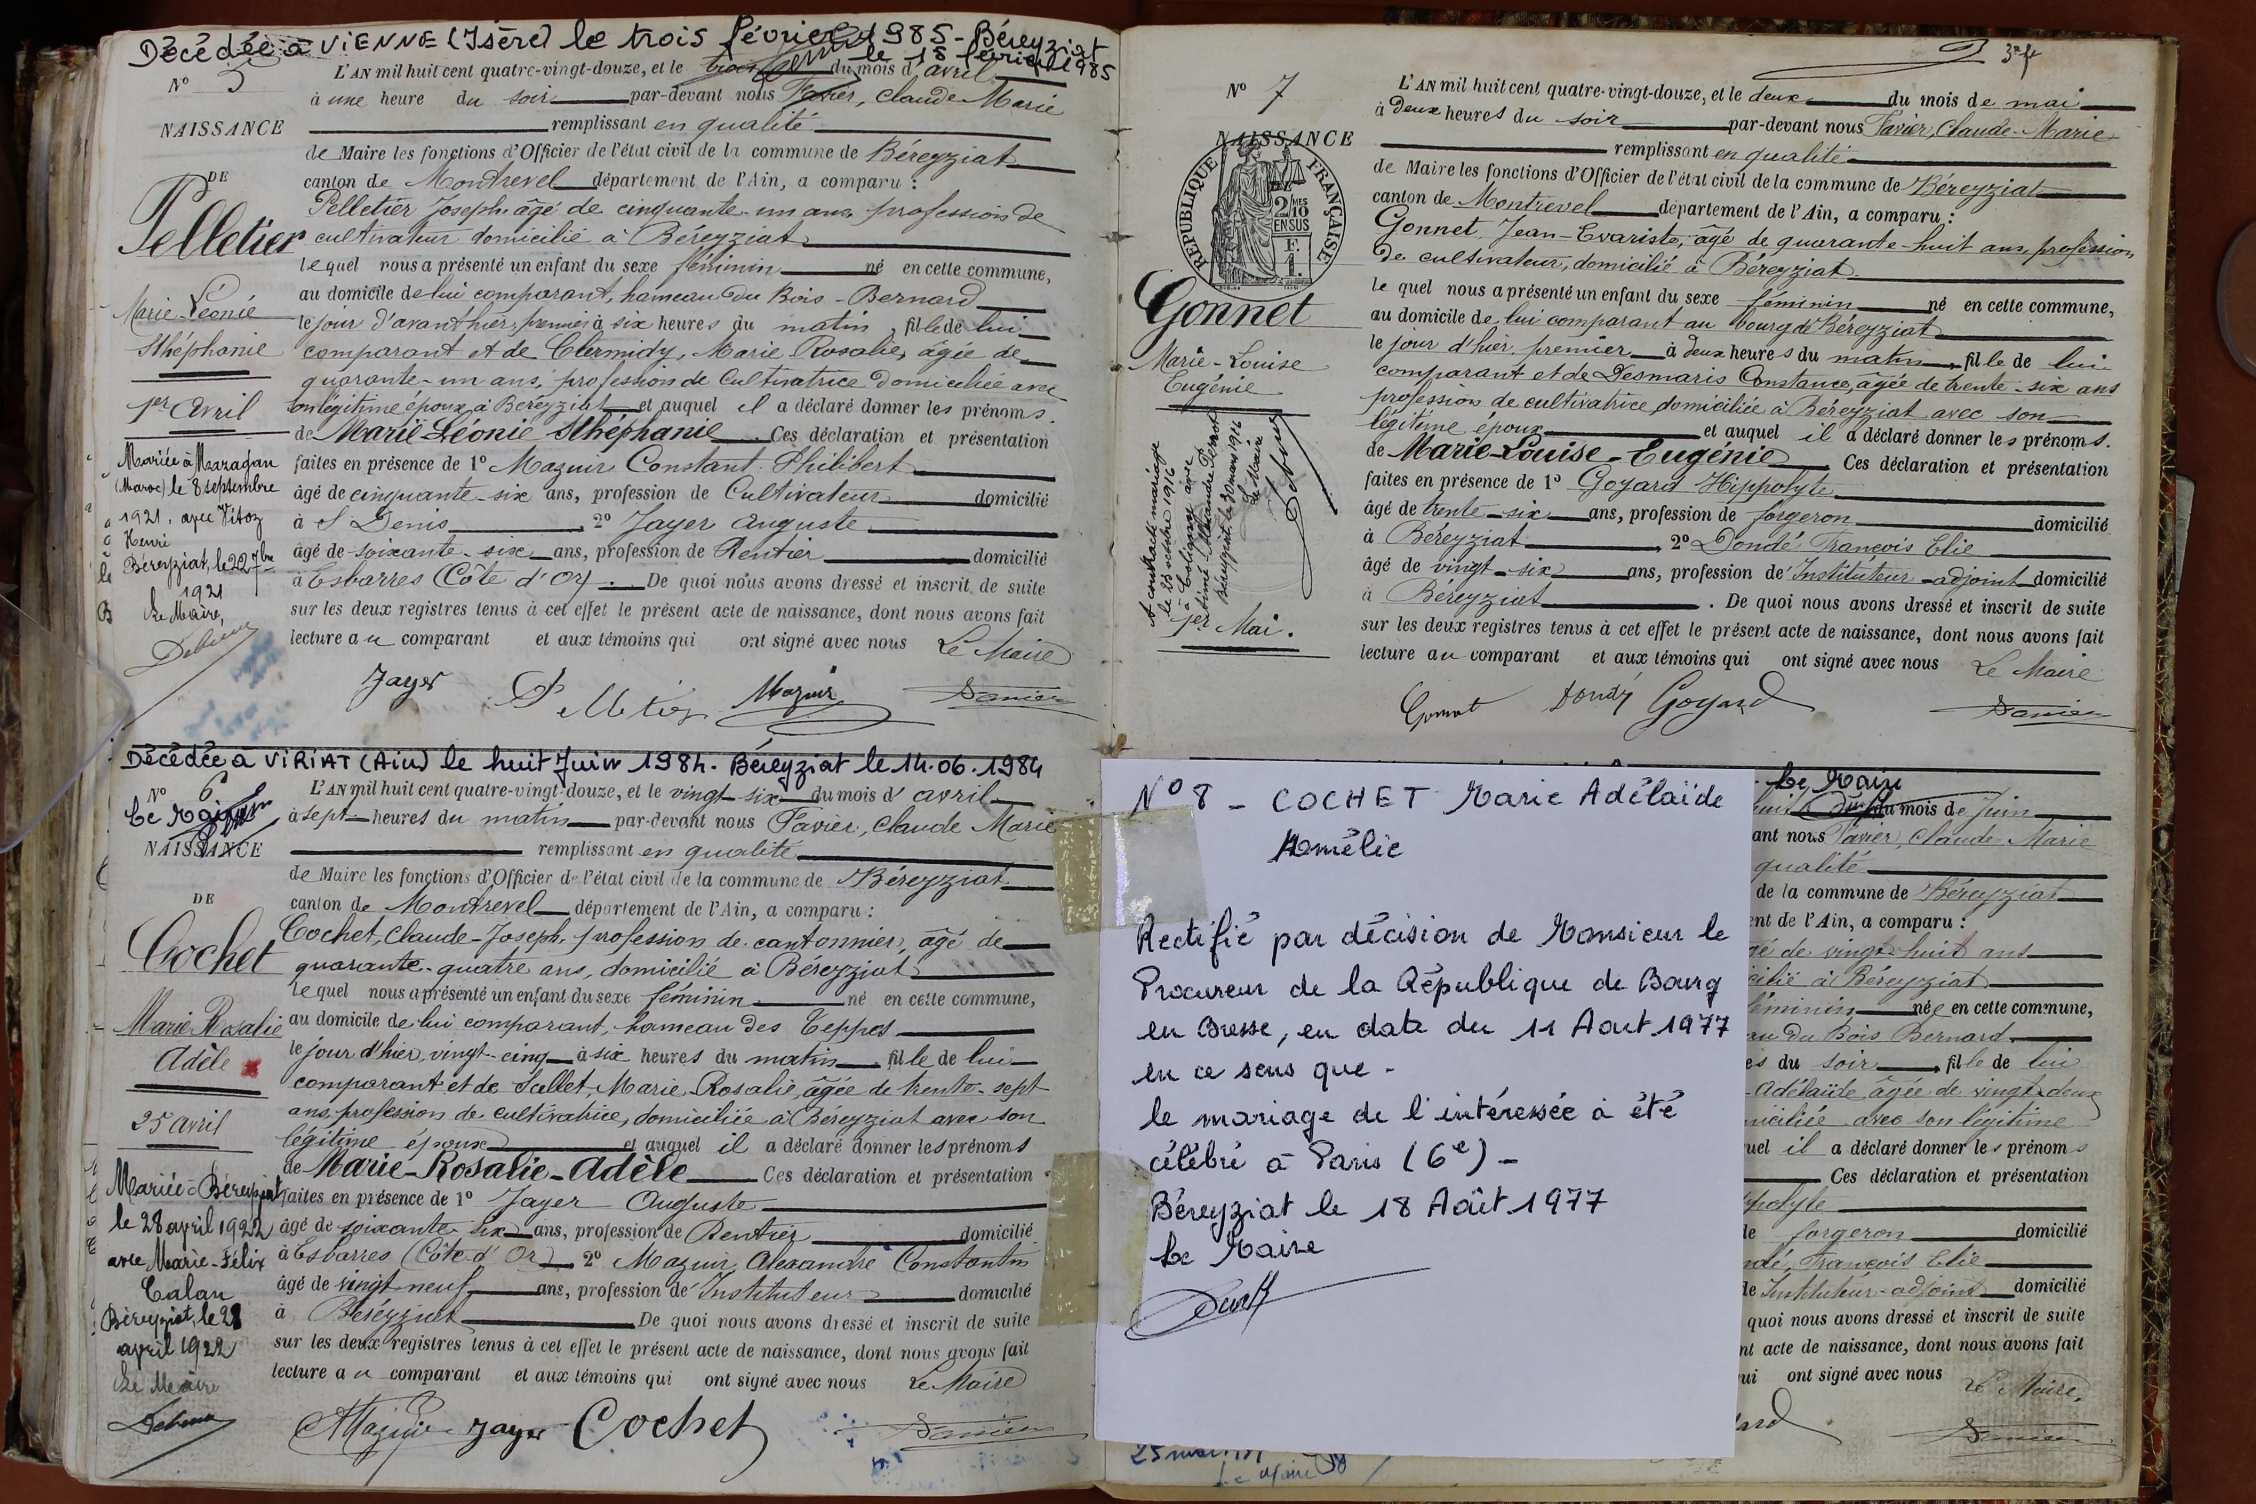 Décédée à VIENNE (Isère) le trois février 1985 - Béreyziat
le 18 février 1985
N° 5
NAISSANCE
DE
Pelletier
Marie Léonie
Sthéphanie
1er avril
Mariée à Mazagan
(Maroc) le 8 septembre
1921, avec Vitoz
Henri
Béreyziat, le 22 7bre
1921
Le Maire,
L'AN mil huit cent quatre-vingt-douze, et le trois du mois d'avril
à une heure du soir par-devant nous Favier, Claude Marie
remplissant en qualité
de Maire les fonctions d'Officier de l'état civil de la commune de Béreyziat
canton de Montrevel département de l'Ain, a comparu :
Pelletier Joseph âgé de cinquante-un ans, profession de
cultivateur domicilié à Béreyziat
lequel nous a présenté un enfant du sexe féminin né en cette commune,
au domicile de lui comparant, hameau du Bois-Bernard
le jour d'avant hier, premier à six heures du matin, fille de lui
comparant et de Clermidy, Marie Rosalie, âgée de
quarante-un ans, profession de Cultivatrice domiciliée avec
son légitime époux à Béreyziat et auquel il a déclaré donner les prénoms
de Marie Léonie Sthéphanie Ces déclaration et présentation
faites en présence de 1° Mazuir Constant Philibert
âgé de cinquante-six ans, profession de Cultivateur domicilié
à St Denis 2° Jayer Auguste
âgé de soixante-six ans, profession de Rentier domicilié
à Esbarres (Côte d'Or). De quoi nous avons dressé et inscrit de suite
sur les deux registres tenus à cet effet le présent acte de naissance, dont nous avons fait
lecture au comparant et aux témoins qui ont signé avec nous Le Maire
Jayer Pelletier Mazuir Favier
Décédée à VIRIAT (Ain) le huit Juin 1984. Béreyziat le 14.06.1984
N° 6
Le Maire
NAISSANCE
DE
Cochet
Marie Rosalie
Adèle
25 avril
Mariée à Béreyziat
le 28 avril 1922
avec Marie-Félix
Calan
Béreyziat, le 28
avril 1922
Le Maire
L'AN mil huit cent quatre-vingt-douze, et le vingt-six du mois d'avril
à sept heures du matin par-devant nous Favier, Claude Marie
remplissant en qualité
de Maire les fonctions d'Officier de l'état civil de la commune de Béreyziat
canton de Montrevel département de l'Ain, a comparu :
Cochet, Claude-Joseph, profession de cantonnier, âgé de
quarante-quatre ans, domicilié à Béreyziat
lequel nous a présenté un enfant du sexe féminin né en cette commune,
au domicile de lui comparant, hameau des Teppes
le jour d'hier, vingt-cinq à six heures du matin fille de lui
comparant et de Sallet, Marie Rosalie, âgée de trente-sept
ans, profession de cultivatrice, domiciliée à Béreyziat avec son
légitime époux et auquel il a déclaré donner les prénoms
de Marie-Rosalie-Adèle Ces déclaration et présentation
faites en présence de 1° Jayer Auguste
âgé de soixante-six ans, profession de Rentier domicilié
à Esbarres (Côte d'Or) 2° Mazuir Alexandre Constantin
âgé de vingt-neuf ans, profession de Instituteur domicilié
à Béreyziat De quoi nous avons dressé et inscrit de suite
sur les deux registres tenus à cet effet le présent acte de naissance, dont nous avons fait
lecture au comparant et aux témoins qui ont signé avec nous Le Maire
AMazuir Jayer Cochet Favier
N° 7
NAISSANCE
RÉPUBLIQUE FRANÇAISE
2/10 MES
EN SUS
F.
1.
Gonnet
Marie-Louise
Eugénie
A contracté mariage
le 28 octobre 1916
à Coligny avec
Mai.
1er
Le Maire
L'AN mil huit cent quatre-vingt-douze, et le deux du mois de mai
à deux heures du soir par-devant nous Favier, Claude-Marie
remplissant en qualité
de Maire les fonctions d'Officier de l'état civil de la commune de Béreyziat
canton de Montrevel département de l'Ain, a comparu :
Gonnet, Jean-Evariste, âgé de quarante-huit ans, profession
de cultivateur, domicilié à Béreyziat
lequel nous a présenté un enfant du sexe féminin né en cette commune,
au domicile de lui comparant au bourg de Béreyziat
le jour d'hier premier à deux heures du matin, fille de lui
comparant et de Desmaris Constance, âgée de trente-six ans
profession de cultivatrice, domiciliée à Béreyziat avec son
légitime époux et auquel il a déclaré donner les prénoms.
de Marie-Louise-Eugénie Ces déclaration et présentation
faites en présence de 1° Goyard Hippolyte
âgé de trente-six ans, profession de forgeron domicilié
à Béreyziat, 2° Dondé François Elie
âgé de vingt-six ans, profession de Instituteur-adjoint domicilié
à Béreyziat. De quoi nous avons dressé et inscrit de suite
sur les deux registres tenus à cet effet le présent acte de naissance, dont nous avons fait
lecture au comparant et aux témoins qui ont signé avec nous Le Maire
Gonnet Dondé Goyard Favier
N° 8 - COCHET Marie Adélaïde
Amélie
Rectifié par décision de Monsieur le
Procureur de la République de Bourg
en Bresse, en date du 11 Aout 1977
en ce sens que -
le mariage de l'intéressée à été
célébré à Paris (6e) -
Béreyziat le 18 Août 1977
Le Maire
Le Maire
du mois de Juin
ant nous Favier, Claude Marie
qualité
de la commune de Béreyziat
ent de l'Ain, a comparu :
gé de vingt-huit ans
cilié à Béreyziat
féminin née en cette commune,
au du Bois Bernard
es du soir, fille de lui
Adélaïde âgée de vingt-deux
miciliée avec son légitime
uel il a déclaré donner les prénoms
Ces déclaration et présentation
ppolyte
de forgeron domicilié
ndé, François Elie
de Instituteur-adjoint domicilié
quoi nous avons dressé et inscrit de suite
nt acte de naissance, dont nous avons fait
ui ont signé avec nous Le Maire,
ard Favier